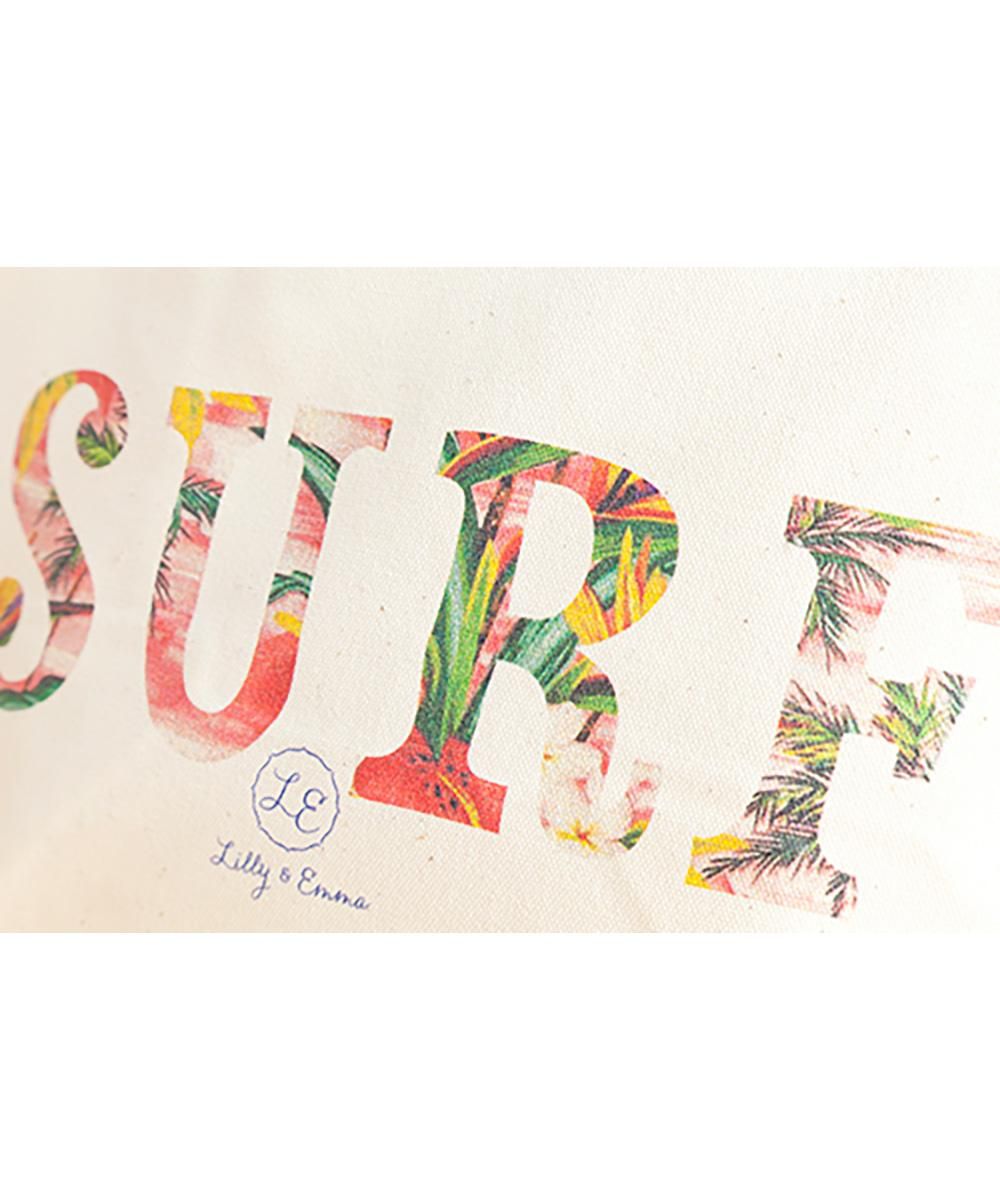 SURF
LE
Lilly & Emma